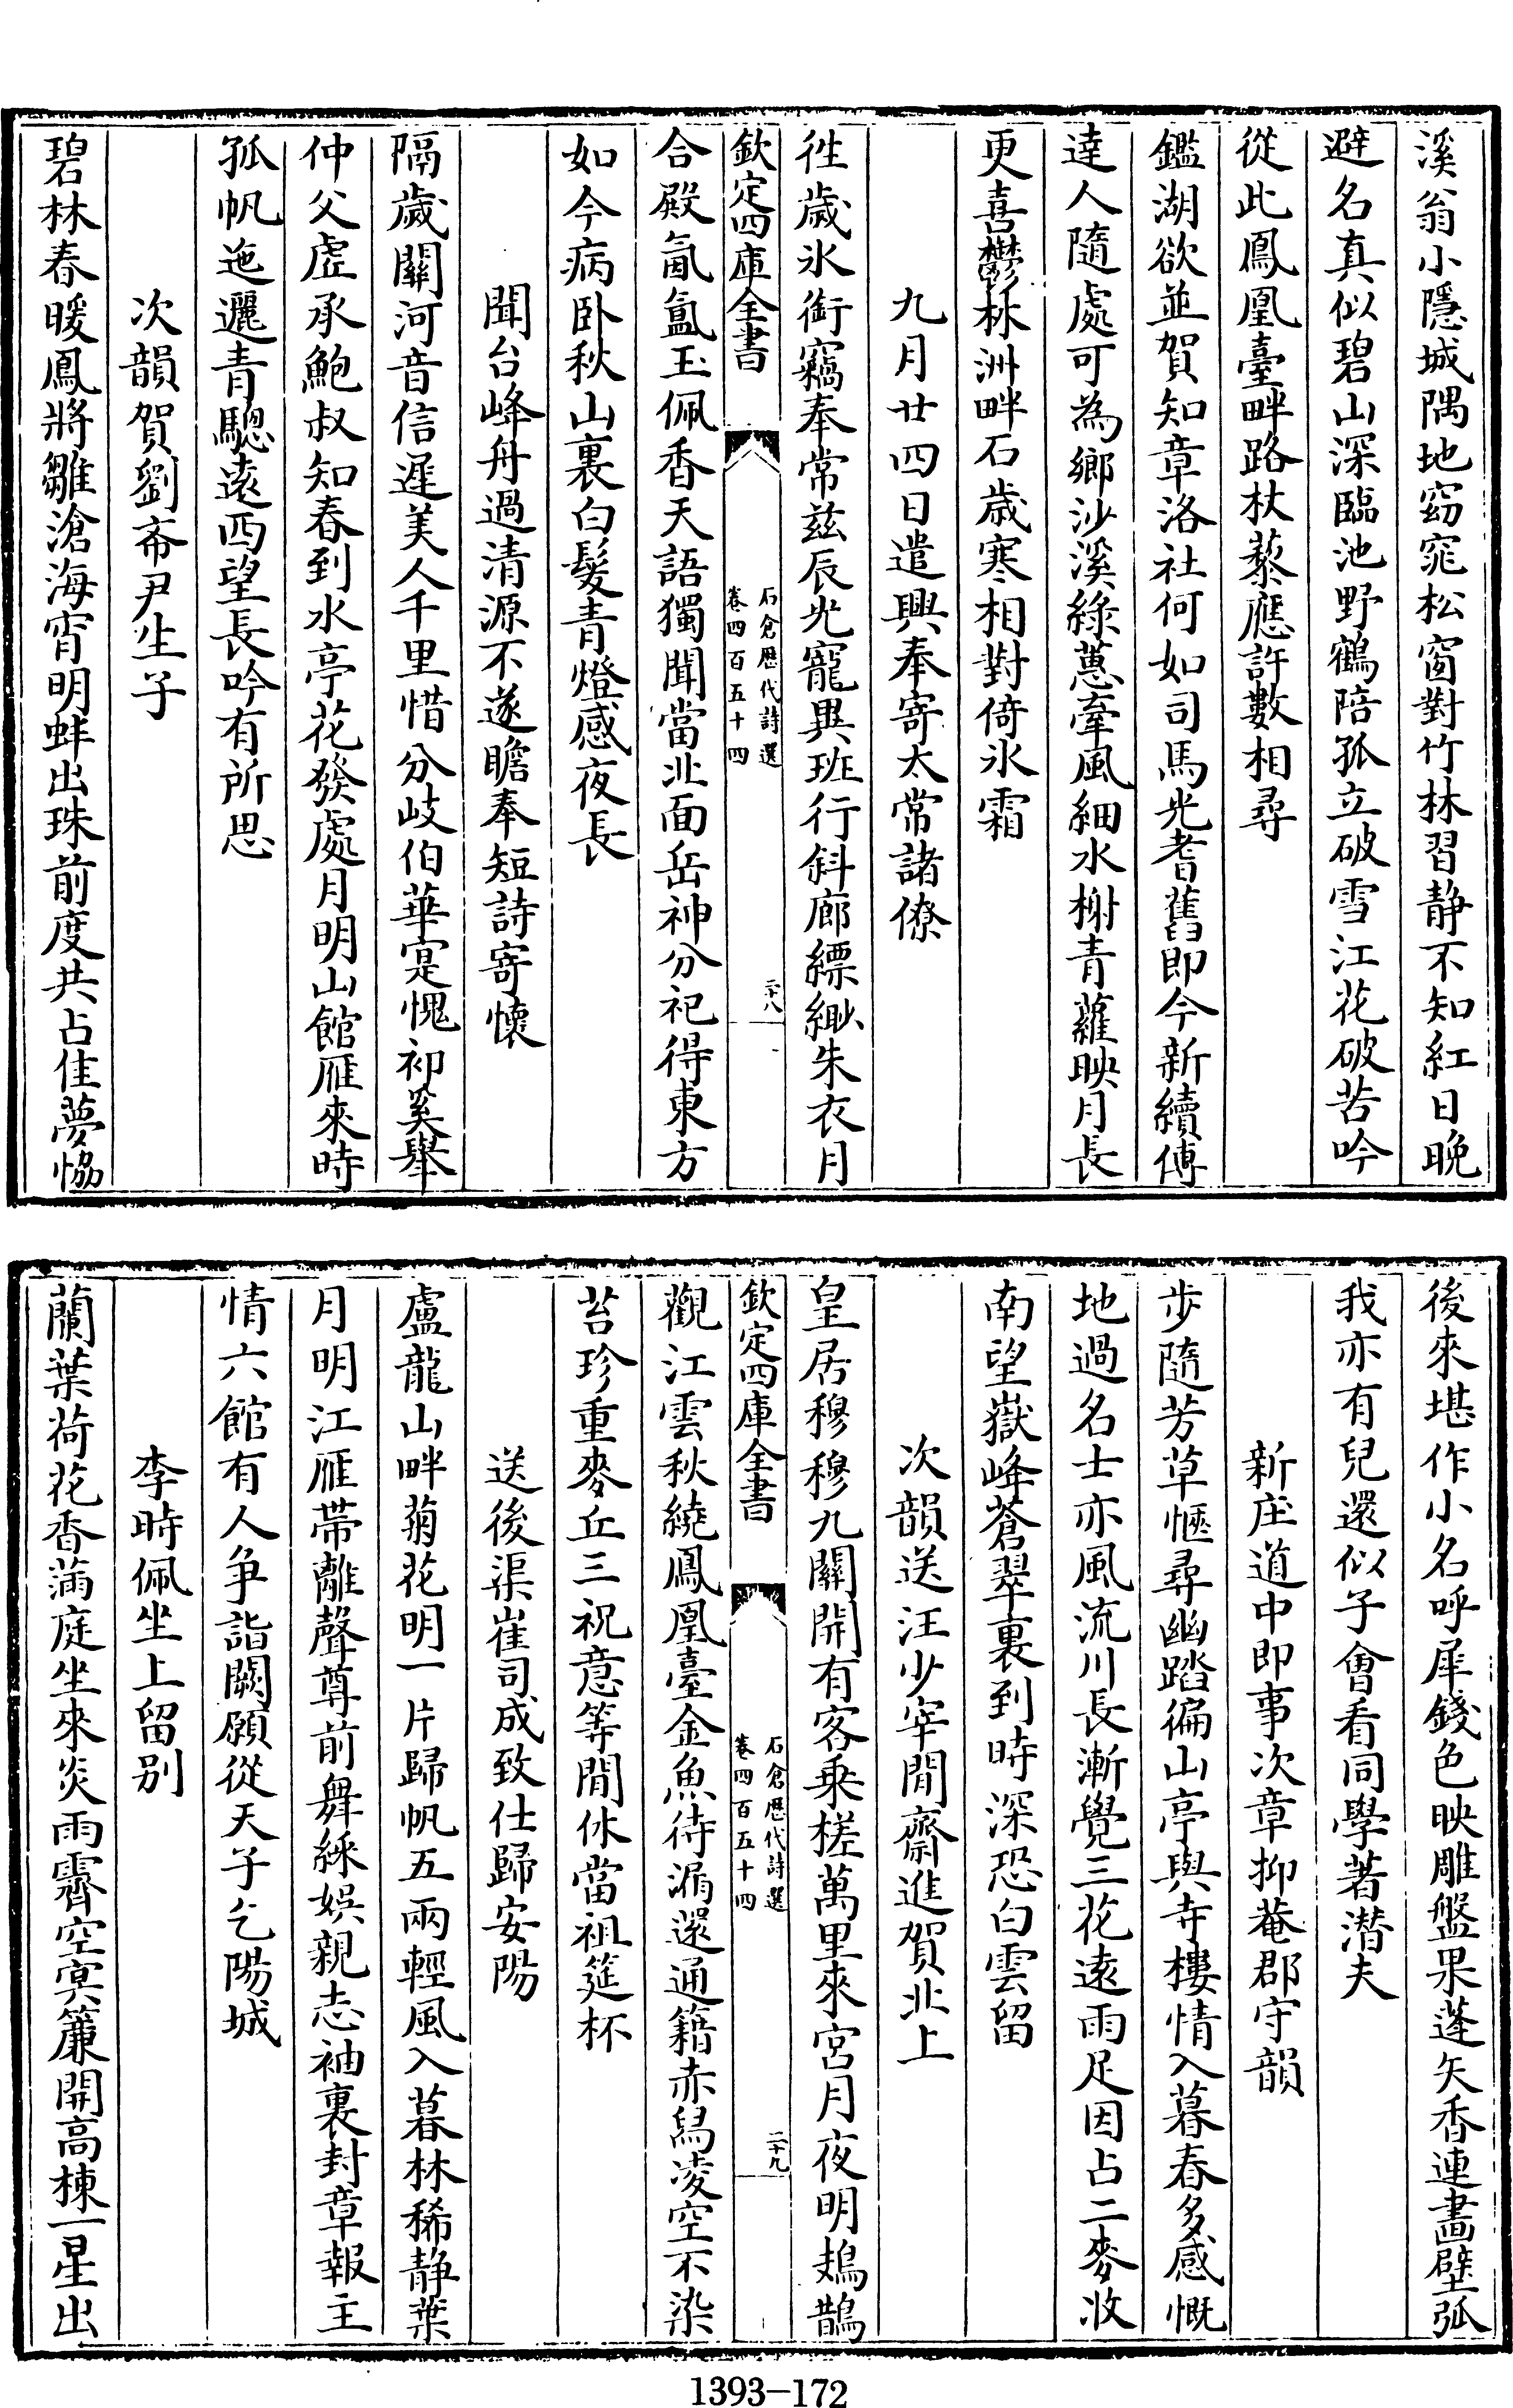 溪翁小隱城隅地窈窕松窗對竹林習静不知紅日晚
避名真似碧山深臨池野鶴陪孤立破雪江花破苦吟
從此鳳凰臺畔路杖藜應許數相尋
鑑湖欲並賀知章洛社何如司馬光耆舊即今新續傳
達人隨處可為鄉沙溪綠蕙牽風細水榭青蘿映月長
更喜鬱林洲畔石歲寒相對倚氷霜
九月廿四日遣興奉寄太常諸僚
徃歲氷銜竊奉常兹辰光寵異班行斜廊縹緲朱衣月
欽定四庫全書
石倉歷代詩選
卷四百五十四
二十八
合殿氤氲玉佩香天語獨聞當北面岳神分祀得東方
如今病卧秋山裏白髮青燈感夜長
聞台峰舟過清源不遂瞻奉短詩寄懷
隔歲關河音信遲美人千里惜分岐伯華寔愧祁奚舉
仲父虛承鮑叔知春到水亭花發處月明山館雁來時
孤帆迤邐青驄遠西望長吟有所思
次韻賀劉斋尹生子
碧林春暖鳳將雛滄海宵明蚌出珠前度共占佳夢恊
後來堪作小名呼犀錢色映雕盤果蓬矢香連畵壁弧
我亦有兒還似子會看同學著潜夫
新庄道中即事次章抑菴郡守韻
步隨芳草愜尋幽踏徧山亭與寺樓情入暮春多感慨
地過名士亦風流川長漸覺三花遠雨足因占二麥收
南望嶽峰蒼翠裏到時深恐白雲留
次韻送汪少宰閒齋進賀北上
皇居穆穆九關開有客乗槎萬里來宮月夜明鳷鵲
欽定四庫全書
石倉歷代詩選
卷四百五十四
二十九
觀江雲秋繞鳳凰臺金魚待漏還通籍赤舄凌空不染
苔珍重麥丘三祝意等閒休當祖筵杯
送後渠崔司成致仕歸安陽
盧龍山畔菊花明一片歸帆五兩輕風入暮林稀静葉
月明江雁帶離聲尊前舞綵娛親志袖裏封章報主
情六館有人争詣闕願從天子乞陽城
李時佩坐上留别
蘭葉荷花香滿庭坐來炎雨霽空冥簾開高棟一星出
1393-172